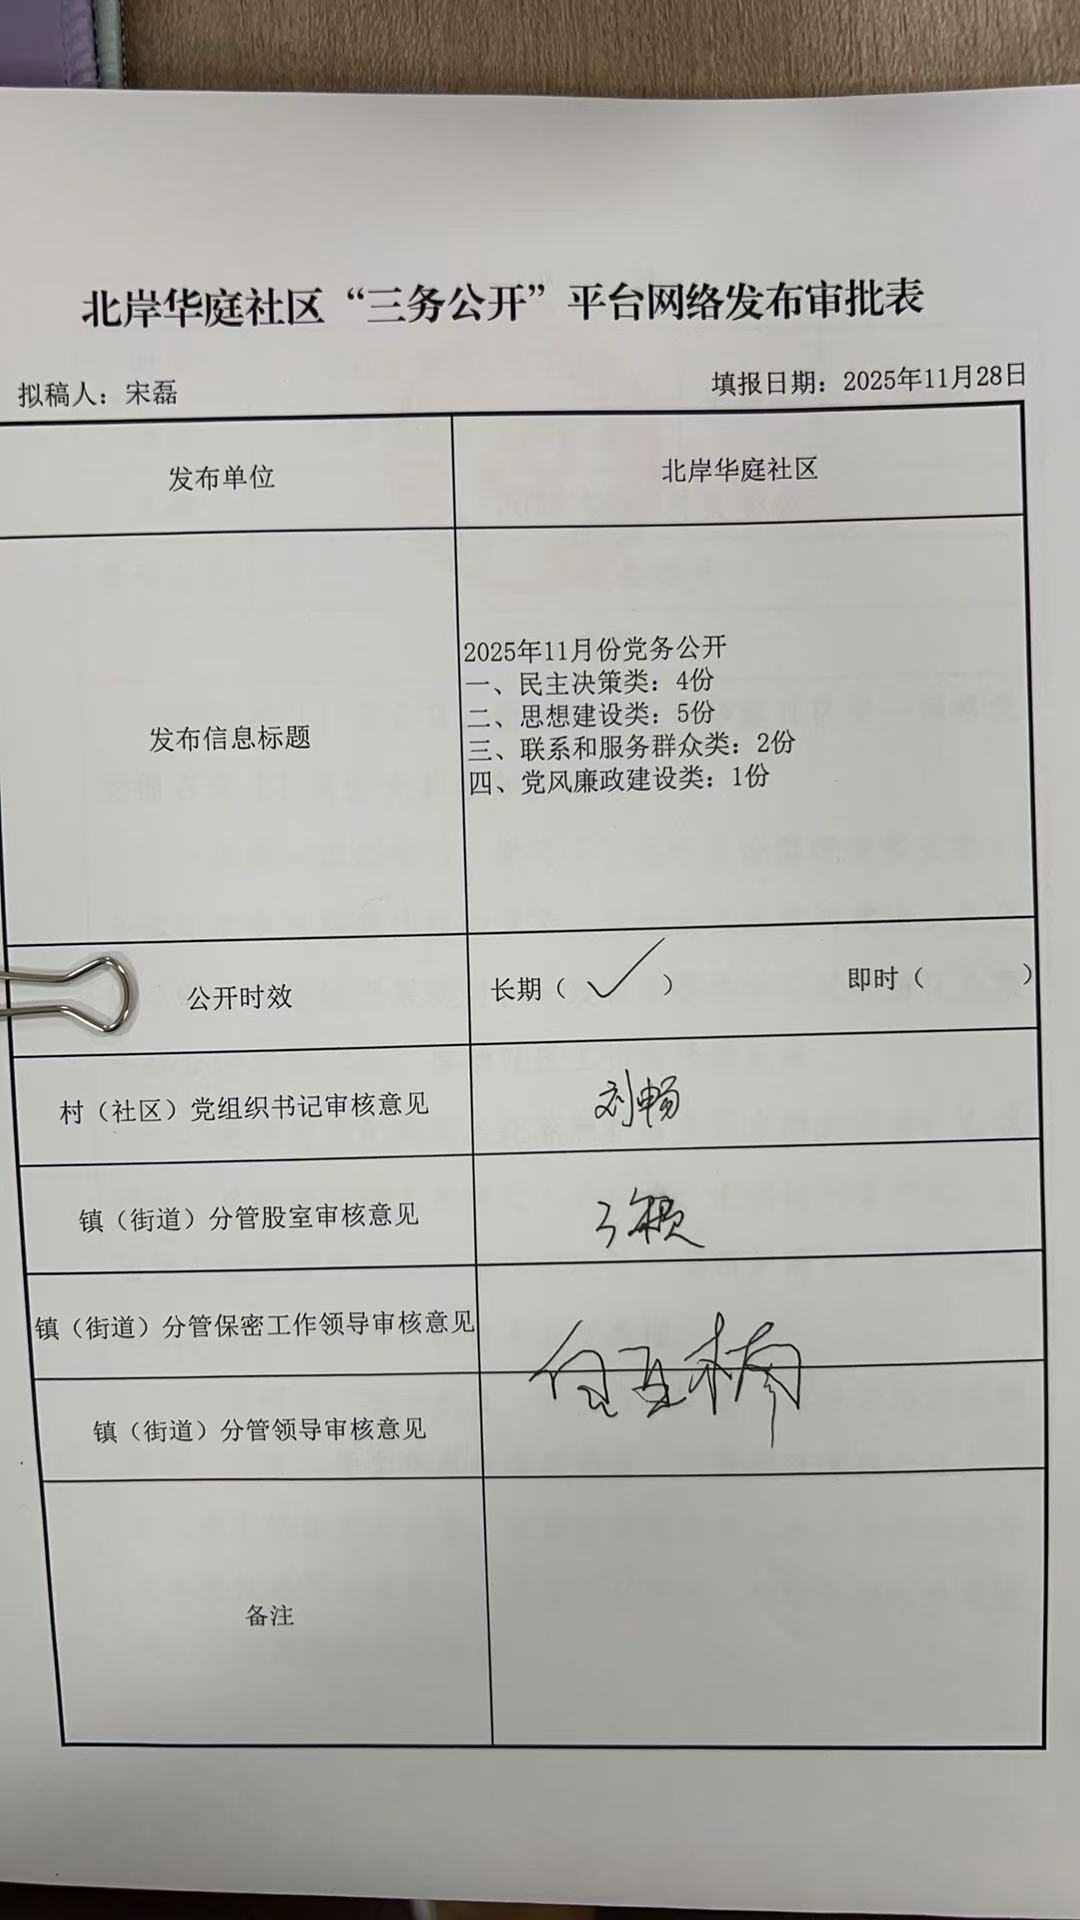 北岸华庭社区“三务公开”平台网络发布审批表
拟稿人：宋磊 填报日期：2025年11月28日
发布单位 北岸华庭社区
发布信息标题
2025年11月份党务公开
一、民主决策类：4份
二、思想建设类：5份
三、联系和服务群众类：2份
四、党风廉政建设类：1份
公开时效 长期（✓） 即时（ ）
村（社区）党组织书记审核意见 刘畅
镇（街道）分管股室审核意见
镇（街道）分管保密工作领导审核意见
镇（街道）分管领导审核意见
备注